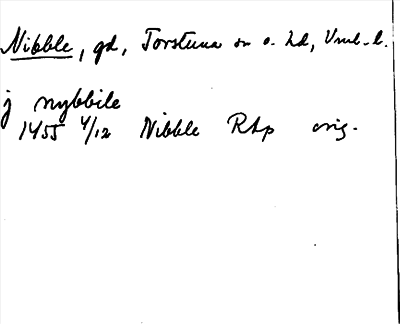 Nibble, gd, Torstuna sn o. hd, Vml. l.
j nybbile
1455 4/12 Nibble RAp orig.